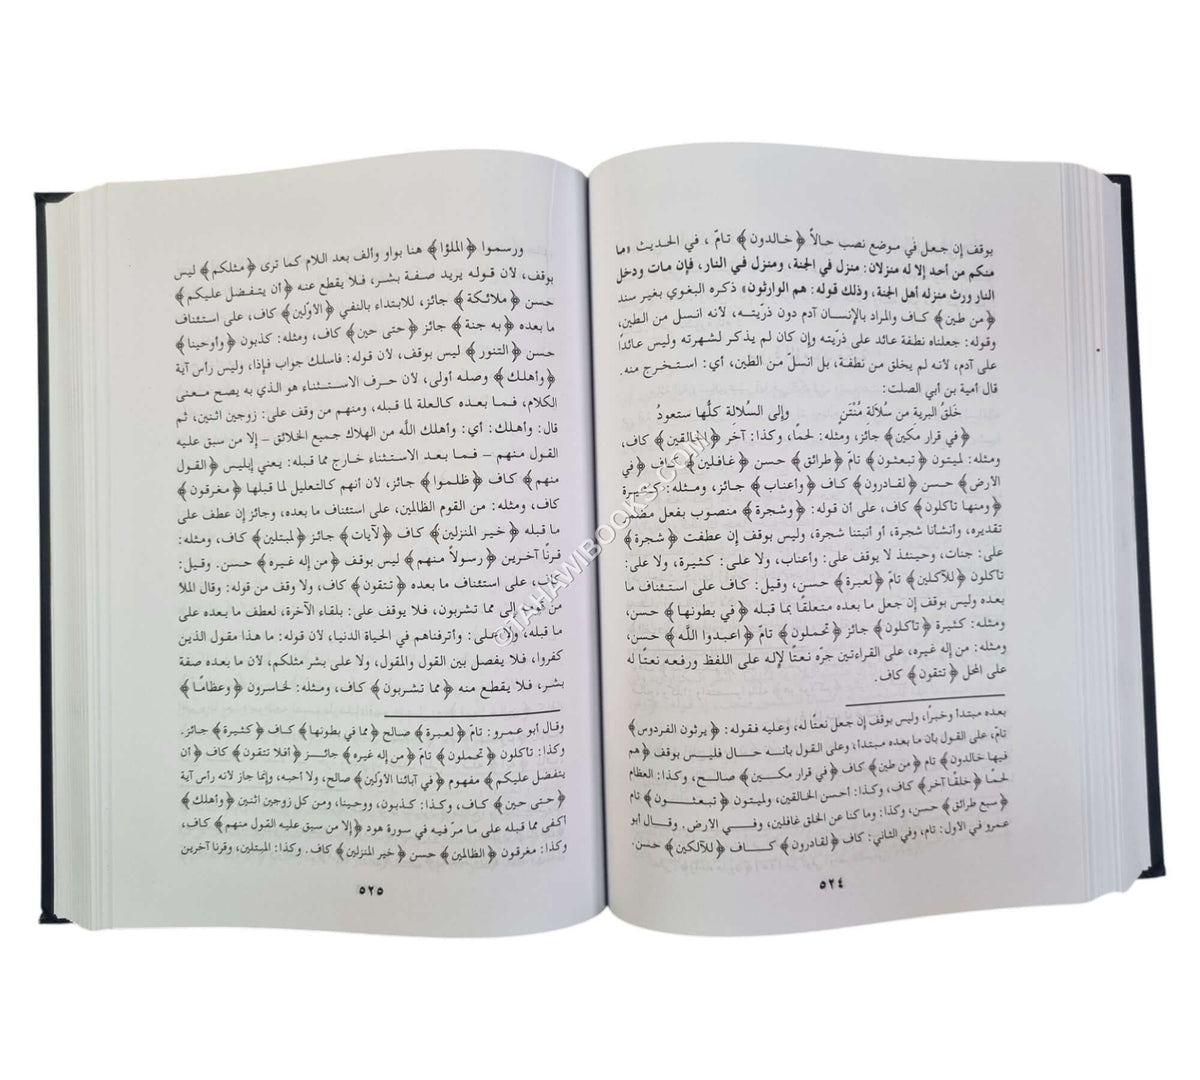 يوقف إن جعل في موضع نصب حالاً ﴿خالدون﴾ تامّ، في الحديث «ما
منكم من أحد إلا له منزلان: منزل في الجنة، ومنزل في النار، فإن مات ودخل
النار ورث منزله أهل الجنة، وذلك قوله: هم الوارثون» ذكره البغوي بغير سند
﴿من طين﴾ كاف والمراد بالإنسان آدم دون ذرّيته، لأنه انسل من الطين،
وقوله: جعلناه نطفة عائد على ذرّيته وإن كان لم يذكر لشهرته وليس عائدًا
على آدم، لأنه لم يخلق من نطفة، بل انسلّ من الطين، أي: استخرج منه.
قال أمية بن أبي الصلت:
خَلقَ البريةِ مِن سُلاَلَة مُنْتَنٍ وإلى السُلالةِ كلُّها ستعودُ
﴿في قرار مكين﴾ جائز، ومثله: لحمًا، وكذا: آخر ﴿الخالقين﴾ كاف،
ومثله: لميتون ﴿تبعثون﴾ تامّ ﴿طرائق﴾ حسن ﴿غافلين﴾ كاف ﴿في
الأرض﴾ حسن ﴿لقادرون﴾ كاف ﴿وأعناب﴾ جائز، ومثله: كثيرة
﴿ومنها تأكلون﴾ كاف، على أن قوله: ﴿وشجرة﴾ منصوب بفعل مضمر
تقديره، وأنشأنا شجرة، أو أنبتنا شجرة، وليس بوقف إن عطفت ﴿شجرة﴾
على: جنات، وحينئذ لا يوقف على: وأعناب، ولا على: كثيرة، ولا على:
تاكلون ﴿للآكلين﴾ تامّ ﴿لعبرة﴾ حسن، وقيل: كاف على استئناف ما
بعده وليس بوقف إن جعل ما بعده متعلقًا بما قبله ﴿في بطونها﴾ حسن،
ومثله: كثيرة ﴿تأكلون﴾ جائز ﴿تحملون﴾ تامّ ﴿اعبدوا اللَّه﴾ حسن،
ومثله: من إله غيره، على القراءتين جرّه نعتًا لإله على اللفظ ورفعه نعتًا له
على المحل ﴿تتقون﴾ كاف.
بعده مبتدأ وخبرا، وليس بوقف إن جعل نعتًا له، وعليه فقوله: ﴿يرثون الفردوس﴾
تامّ، على القول بأن ما بعده مبتدأ، وعلى القول بأنه حال فليس بوقف ﴿هم
فيها خالدون﴾ تام ﴿من طين﴾ كاف ﴿في قرار مكين﴾ صالح، وكذا: العظام
لحمًا ﴿خلقًا آخر﴾ كاف، وكذا: أحسن الخالقين، ولميتون ﴿تبعثون﴾ تام
﴿سبع طرائق﴾ حسن، وكذا: وما كنا عن الخلق غافلين، وفي الأرض. وقال أبو
عمرو في الأول: تام، وفي الثاني: كاف ﴿لقادرون﴾ كاف ﴿للآلكين﴾ حسن.
٥٢٤
ورسموا ﴿الملؤا﴾ هنا بواو وألف بعد اللام كما ترى ﴿مثلكم﴾ ليس
بوقف، لأن قوله يريد صفة بشر، فلا يقطع عنه ﴿أن يتفضل عليكم﴾
حسن ﴿ملائكة﴾ جائز، للابتداء بالنفي ﴿الأوّلين﴾ كاف، على استئناف
ما بعده ﴿به جنة﴾ جائز ﴿حتى حين﴾ كاف، ومثله: كذبون ﴿وأوحينا﴾
حسن ﴿التنور﴾ ليس بوقف، لأن قوله: فاسلك جواب فإذا، وليس رأس آية
﴿وأهلك﴾ وصله أولى، لأن حرف الاستثناء هو الذي به يصح معنى
الكلام، فما بعده كالعلة لما قبله، ومنهم من وقف على: زوجين اثنين، ثم
قال: وأهلك: أي: وأهلك اللَّه من الهلاك جميع الخلائق – إلا من سبق عليه
القول منهم – فما بعد الاستثناء خارج مما قبله: يعني إبليس ﴿القول
منهم﴾ كاف ﴿ظلموا﴾ جائز، لأن أنهم كالتعليل لما قبلها ﴿مغرقون﴾
كاف، ومثله: من القوم الظالمين، على استئناف ما بعده، وجائز إن عطف على
ما قبله ﴿خير المنزلين﴾ كاف ﴿لآيات﴾ جائز ﴿لمبتلين﴾ كاف، ومثله:
قرنًا آخرين ﴿رسولاً منهم﴾ ليس بوقف ﴿من إله غيره﴾ حسن. وقيل:
كاف، على استئناف ما بعده ﴿تتقون﴾ كاف، ولا وقف من قوله: وقال الملأ
من قومه إلى مما تشربون، فلا يوقف على: بلقاء الآخرة، لعطف ما بعده على
ما قبله، ولا على: وأترفناهم في الحياة الدنيا، لأن قوله: ما هذا مقول الذين
كفروا، فلا يفصل بين القول والمقول، ولا على بشر مثلكم، لأن ما بعده صفة
بشر، فلا يقطع منه ﴿مما تشربون﴾ كاف، ومثله: لخاسرون ﴿وعظامًا﴾
وقال أبو عمرو: تامّ ﴿لعبرة﴾ صالح ﴿مما في بطونها﴾ كاف ﴿كثيرة﴾ جائز.
وكذا: تأكلون ﴿تحملون﴾ تامّ ﴿من إله غيره﴾ جائز ﴿أفلا تتقون﴾ كاف ﴿أن
يتفضل عليكم﴾ مفهوم ﴿في آبائنا الأوّلين﴾ صالح، ولا أحبه، وإنما جاز لأنه رأس آية
﴿حتى حين﴾ كاف، وكذا: كذبون، ووحينا، ومن كل زوجين اثنين ﴿وأهلك﴾
أكفى مما قبله على ما مرّ فيه في سورة هود ﴿إلا من سبق عليه القول منهم﴾ كاف،
وكذا: مغرقون ﴿الظالمين﴾ حسن ﴿خير المنزلين﴾ كاف. وكذا: المبتلين، وقرنا آخرين
٥٢٥
©TAHAWIBOOKS.COM